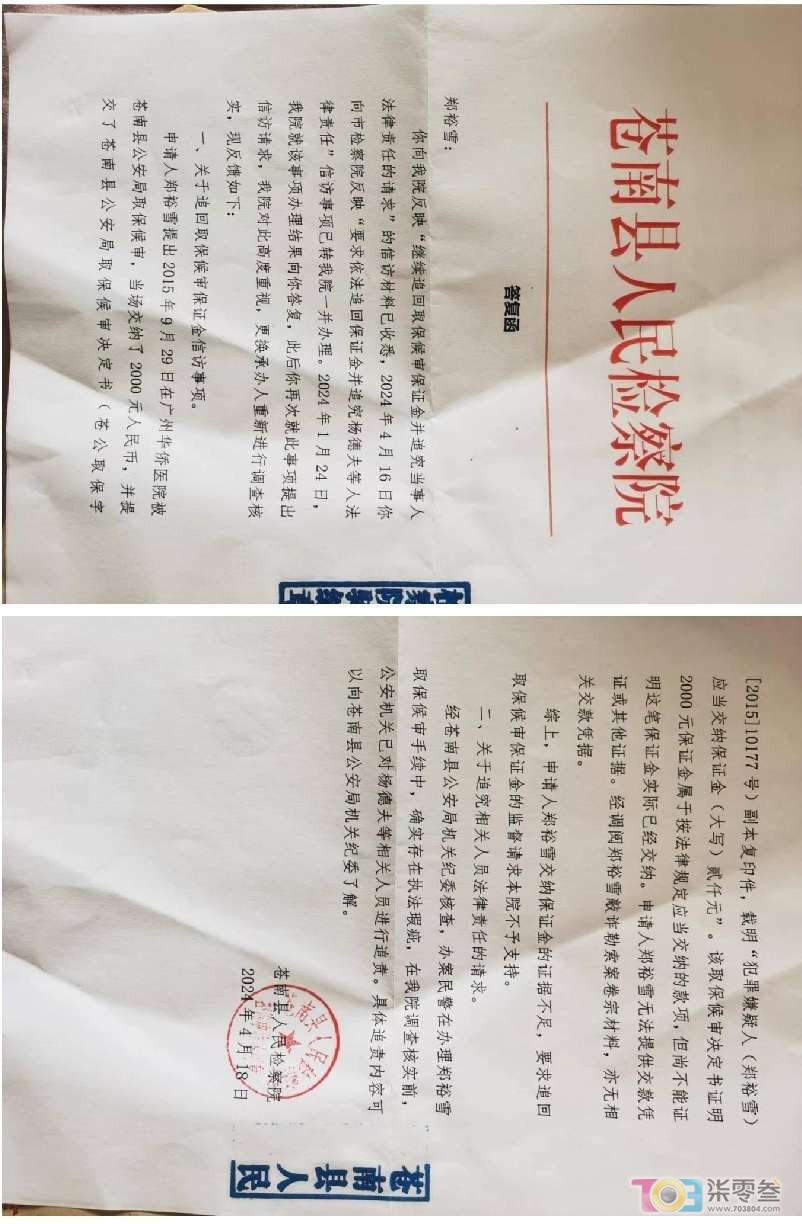 苍南县人民检察院
答复函
郑裕雪：
你向我院反映“继续追回取保候审保证金并追究当事人
法律责任的请求”的信访材料已收悉，2024年4月16日你
向市检察院反映“要求依法追回保证金并追究杨德夫等人法
律责任”信访事项已转我院一并办理。2024年1月24日，
我院就该事项办理结果向你答复，此后你再次就此事项提出
信访请求，我院对此高度重视，更换承办人重新进行调查核
实，现反馈如下：
一、关于追回取保候审保证金信访事项。
申请人郑裕雪提出2015年9月29日在广州华侨医院被
苍南县公安局取保候审，当场交纳了2000元人民币，并提
交了苍南县公安局取保候审决定书（苍公取保字
[2015]10177号）副本复印件，载明“犯罪嫌疑人（郑裕雪）
应当交纳保证金（大写）贰仟元”。该取保候审决定书证明
2000元保证金属于按法律规定应当交纳的款项，但尚不能证
明这笔保证金实际已经交纳。申请人郑裕雪无法提供交款凭
证或其他证据。经调阅郑裕雪敲诈勒索案卷宗材料，亦无相
关交款凭据。
综上，申请人郑裕雪交纳保证金的证据不足，要求追回
取保候审保证金的监督请求本院不予支持。
二、关于追究相关人员法律责任的请求。
经苍南县公安局机关纪委核查，办案民警在办理郑裕雪
取保候审手续中，确实存在执法瑕疵，在我院调查核实前，
公安机关已对杨德夫等相关人员进行追责。具体追责内容可
以向苍南县公安局机关纪委了解。
苍南县人民检察院
2024年4月18日
苍南县人民
703 柒零叁
www.703804.com